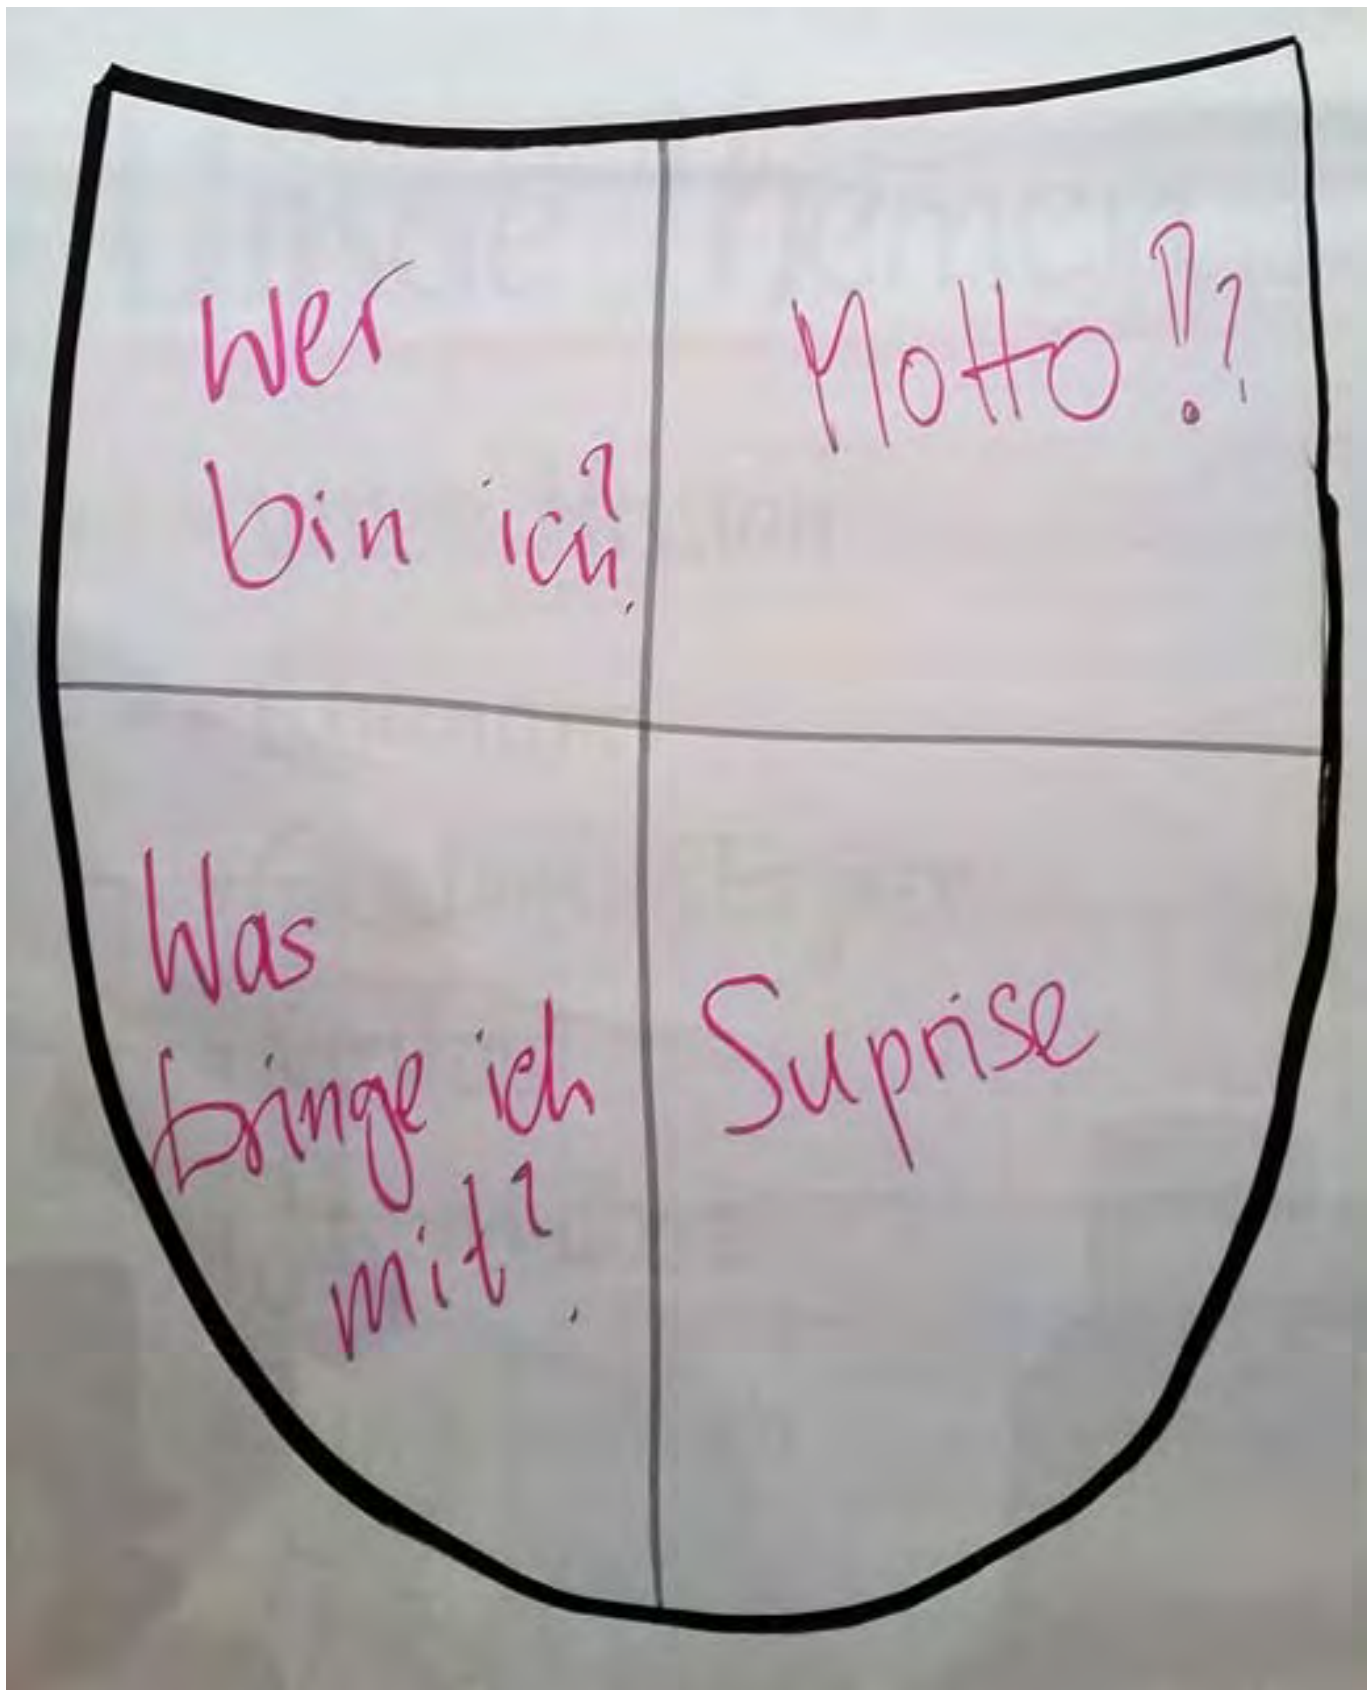 Wer
bin ich?
Motto!?
Was
bringe ich
mit?
Suprise